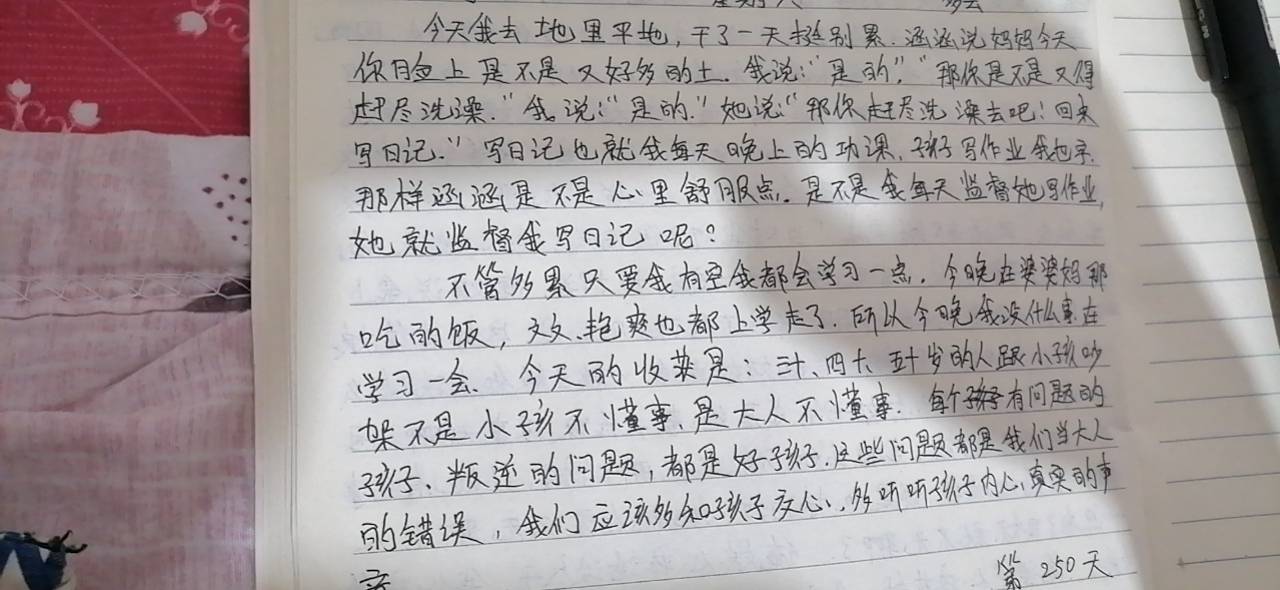 今天我去地里平地，干了一天挺别累．涵涵说妈妈今天
你脸上是不是又好多的土．我说："是的"，"那你是不是又得
赶尽洗澡．"我说："是的．"她说："那你赶尽洗澡去吧！回来
写日记．"写日记也就我每天晚上的功课，孩子写作业我也写．
那样涵涵是不是心里舒服点．是不是我每天监督她写作业，
她就监督我写日记呢？
不管多累只要我有空我都会学习一点．今晚在婆婆妈那
吃的饭，文文、艳爽也都上学走了．所以今晚我没什么事在
学习一会．今天的收获是：三十、四十、五十岁的人跟小孩吵
架不是小孩不懂事，是大人不懂事．每个有问题的
孩子、叛逆的问题，都是好孩子．这些问题都是我们当大人
的错误，我们应该多和孩子交心、多听听孩子内心，真实的声
音
第250天